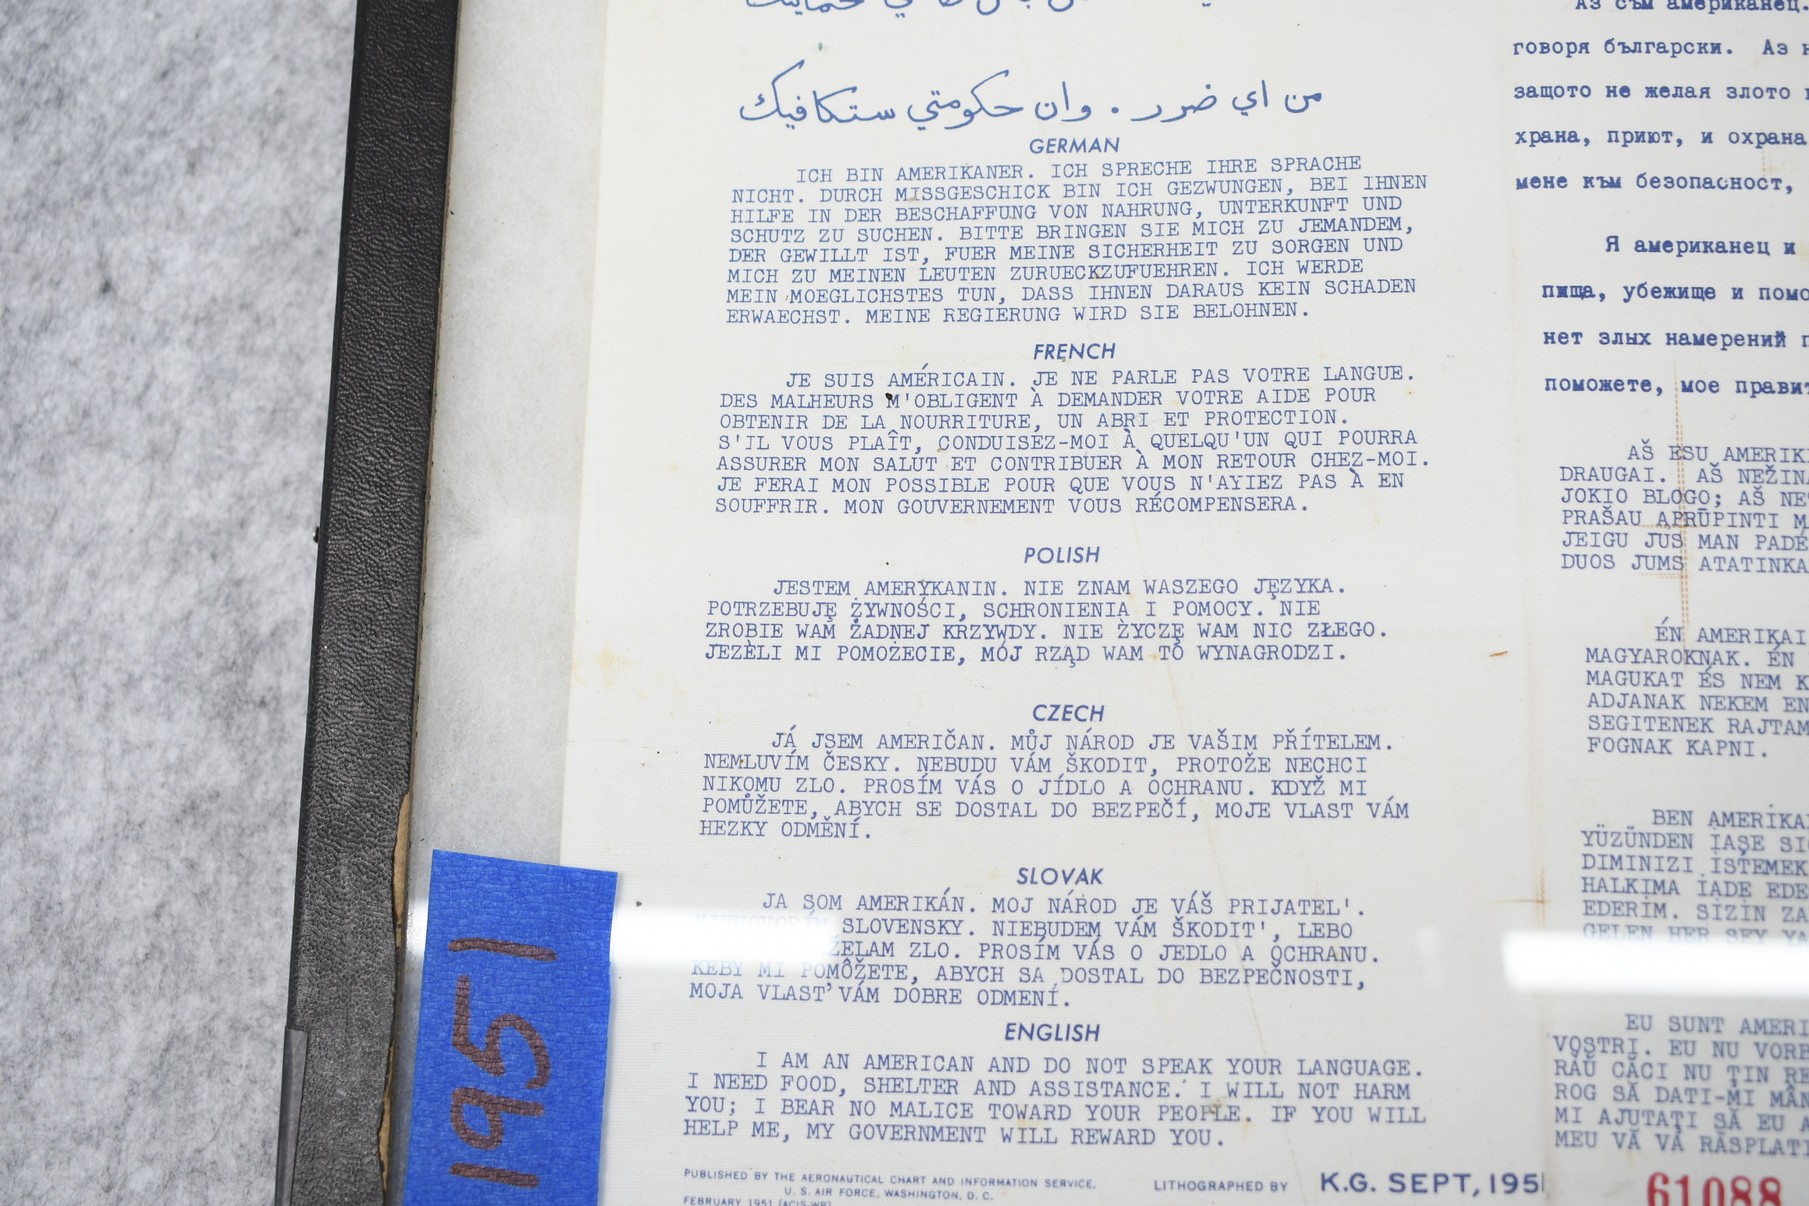 من اي ضرر . وان حكومتي ستكافيك
GERMAN
ICH BIN AMERIKANER. ICH SPRECHE IHRE SPRACHE
NICHT. DURCH MISSGESCHICK BIN ICH GEZWUNGEN, BEI IHNEN
HILFE IN DER BESCHAFFUNG VON NAHRUNG, UNTERKUNFT UND
SCHUTZ ZU SUCHEN. BITTE BRINGEN SIE MICH ZU JEMANDEM,
DER GEWILLT IST, FUER MEINE SICHERHEIT ZU SORGEN UND
MICH ZU MEINEN LEUTEN ZURUECKZUFUEHREN. ICH WERDE
MEIN MOEGLICHSTES TUN, DASS IHNEN DARAUS KEIN SCHADEN
ERWAECHST. MEINE REGIERUNG WIRD SIE BELOHNEN.
FRENCH
JE SUIS AMÉRICAIN. JE NE PARLE PAS VOTRE LANGUE.
DES MALHEURS M'OBLIGENT À DEMANDER VOTRE AIDE POUR
OBTENIR DE LA NOURRITURE, UN ABRI ET PROTECTION.
S'IL VOUS PLAÎT, CONDUISEZ-MOI À QUELQU'UN QUI POURRA
ASSURER MON SALUT ET CONTRIBUER À MON RETOUR CHEZ-MOI.
JE FERAI MON POSSIBLE POUR QUE VOUS N'AYIEZ PAS À EN
SOUFFRIR. MON GOUVERNEMENT VOUS RÉCOMPENSERA.
POLISH
JESTEM AMERYKANIN. NIE ZNAM WASZEGO JĘZYKA.
POTRZEBUJĘ ŻYWNOŚCI, SCHRONIENIA I POMOCY. NIE
ZROBIE WAM ŻADNEJ KRZYWDY. NIE ŻYCZĘ WAM NIC ZŁEGO.
JEZELI MI POMOŻECIE, MÓJ RZĄD WAM TO WYNAGRODZI.
CZECH
JÁ JSEM AMERIČAN. MŮJ NÁROD JE VAŠIM PŘÍTELEM.
NEMLUVÍM ČESKY. NEBUDU VÁM ŠKODIT, PROTOŽE NECHCI
NIKOMU ZLO. PROSÍM VÁS O JÍDLO A OCHRANU. KDYŽ MI
POMŮŽETE, ABYCH SE DOSTAL DO BEZPEČÍ, MOJE VLAST VÁM
HEZKY ODMĚNÍ.
SLOVAK
JA SOM AMERIKÁN. MOJ NÁROD JE VÁŠ PRIJATEL'.
SLOVENSKY. NIEBUDEM VÁM ŠKODIT', LEBO
ZLO. PROSÍM VÁS O JEDLO A OCHRANU.
KEBY MI POMÔŽETE, ABYCH SA DOSTAL DO BEZPEČNOSTI,
MOJA VLAST' VÁM DOBRE ODMENÍ.
ENGLISH
I AM AN AMERICAN AND DO NOT SPEAK YOUR LANGUAGE.
I NEED FOOD, SHELTER AND ASSISTANCE. I WILL NOT HARM
YOU; I BEAR NO MALICE TOWARD YOUR PEOPLE. IF YOU WILL
HELP ME, MY GOVERNMENT WILL REWARD YOU.
PUBLISHED BY THE AERONAUTICAL CHART AND INFORMATION SERVICE,
U. S. AIR FORCE, WASHINGTON, D. C.
FEBRUARY 1951 (ACIS-WR)
LITHOGRAPHED BY K.G. SEPT, 1951
1951
Аз съм американец.
говоря български. Аз
защото не желая злото
храна, приют, и охрана
мене към безопасност,
Я американец и
пища, убежище и
нет злых намерений
поможете, мое
AŠ ESU
DRAUGAI. AŠ
JOKIO BLOGO; AŠ
PRAŠAU APRŪPINTI
JEIGU JUS MAN
DUOS JUMS
ÉN AMERIKAI
MAGYAROKNAK. ÉN
MAGUKAT ÉS NEM
ADJANAK NEKEM
SEGITENEK
FOGNAK KAPNI.
BEN
YÜZÜNDEN IAŞE
DIMINIZI ISTEMEK
HALKIMA IADE
EDERIM. SIZIN
GELEN HER SEY
EU SUNT
VOSTRI. EU NU
RĂU CĂCI NU ŢIN
ROG SĂ DATI-MI
MI AJUTAŢI SĂ EU
MEU VĂ VA
61088